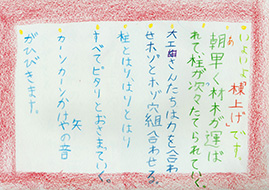 いよいよ棟上げです。
朝早く材木が運ば
れて柱が次々たてられていく。
大工さんたちは力を合わ
せホゾとホゾ穴組合わせる
柱とはり、はりとはり
すべてピターとおさまっていく。
カンカーンかけやの音
がひびきます。